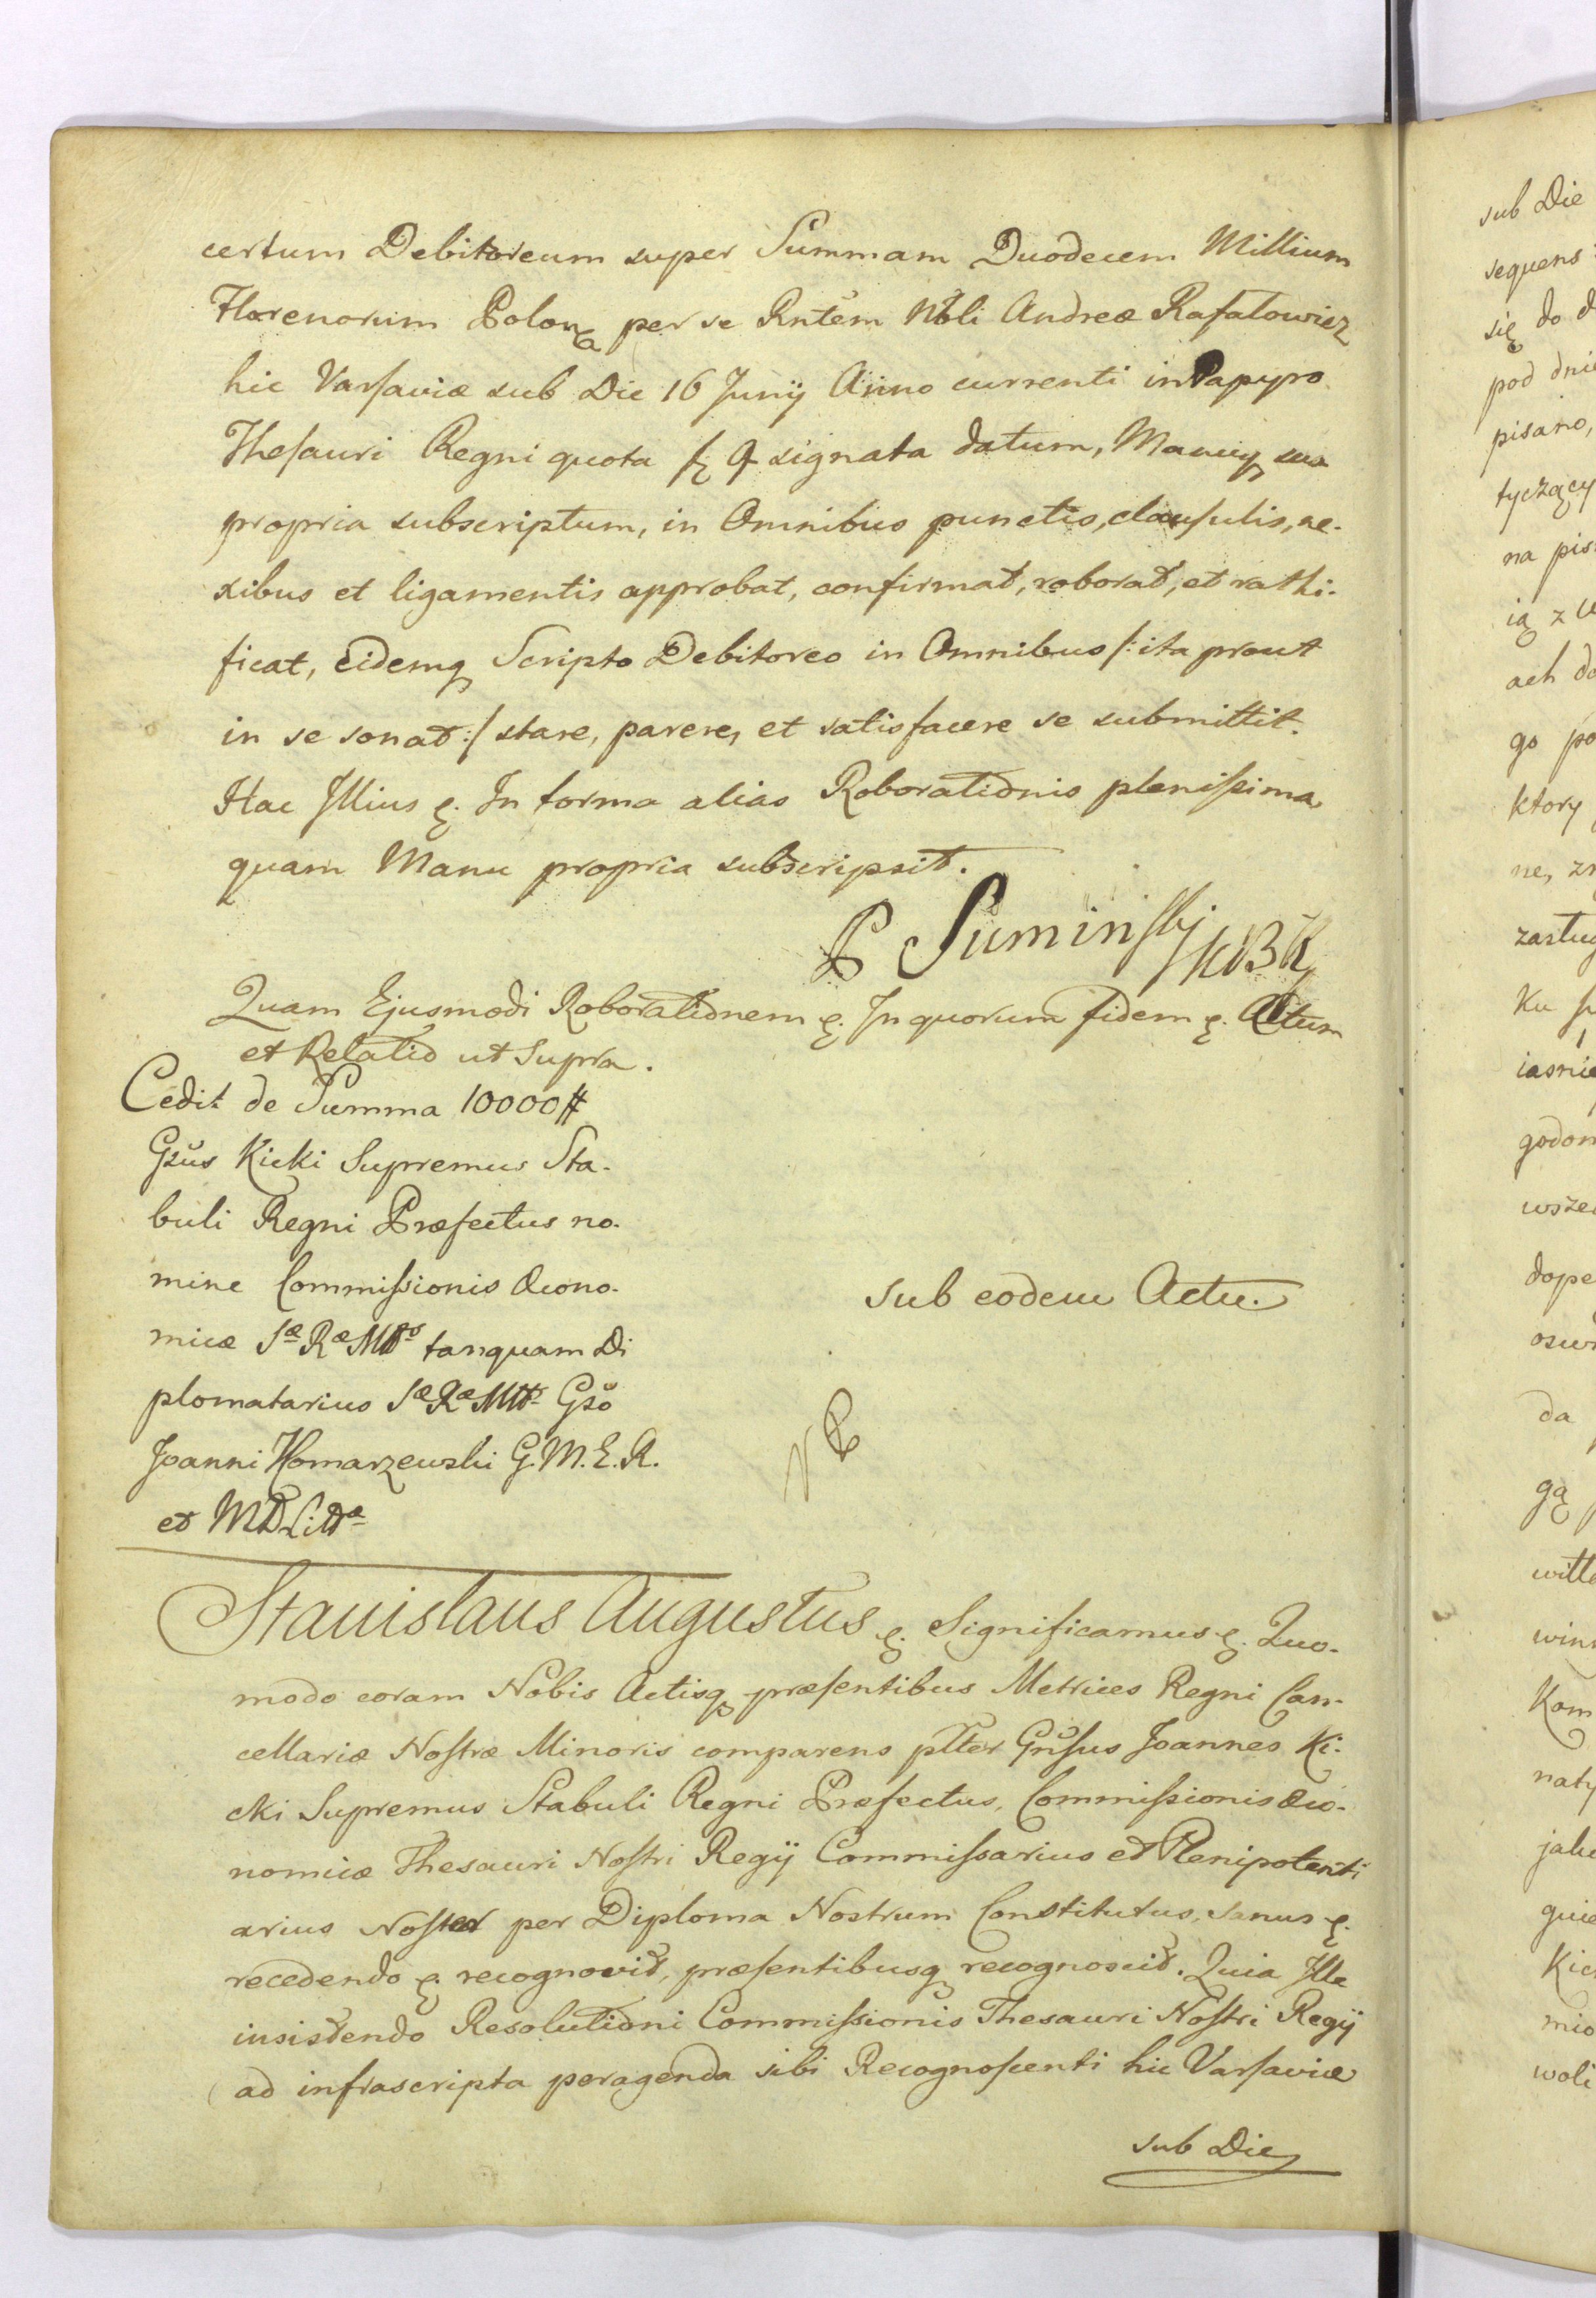 certum Debitoreum super Summam Duodecem Millium
Florenorum Polon per se Rntem Nbli Andreæ Rafałowicz
hic Varsaviæ sub Die 16 Junij Anno currenti in Papyro
Thesauri Regni quota signata datum, Manuq sua
propria subscriptum, in Omnibus punctis, clausulis, ne-
xibus et ligamentis approbat, confirmat, roborat, et rathi-
ficat, Eidemq Scripto Debitoreo in Omnibus /: ita prout
in se sonat :/ stare, parere, et satisfacere se submittit.
Hac Illius &. In forma alias Roborationis plenissima
quam Manu propria subscripsit.
P Suminski
Quam Ejusmodi Roborationem &. In quorum fidem &. Actum
et Relatio ut Supra.
Cedit de Summa 10000 #
Gsus Kicki Supremus Sta-
buli Regni Præfectus no-
mine Commissionis Œcono-
micæ Sæ Ræ Mttis tanquam Di
plomatarius Sæ Ræ Mttis Gso
Joanni Komarzewski G. M. E. R.
et M D Littæ
sub eodem Actu.
Stanislaus Augustus &. Significamus &. Quo-
modo coram Nobis Actisq præsentibus Metrices Regni Can-
cellariæ Nostræ Minoris comparens plter Gnsus Joannes Ki-
cki Supremus Stabuli Regni Præfectus, Commissionis Œco-
nomicæ Thesauri Nostri Regij Commissarius et Plenipotenti
arius Noster per Diploma Nostrum Constitutus, sanus &.
recedendo &. recognovit, præsentibusq recognoscit. Quia Ille
insistendo Resolutioni Commissionis Thesauri Nostri Regij
ad infrascripta peragenda sibi Recognoscenti hic Varsaviæ
sub Die
sub Die
sequens
się do d
pod dni
pisano,
tyczący
na pis
ią z
ach do
go po
ktory
ne, zn
zasług
ku
iasnie
godom
wsze
dope
da
gą
witte
winn
Kom
naty
guie
Kic
mio
woli